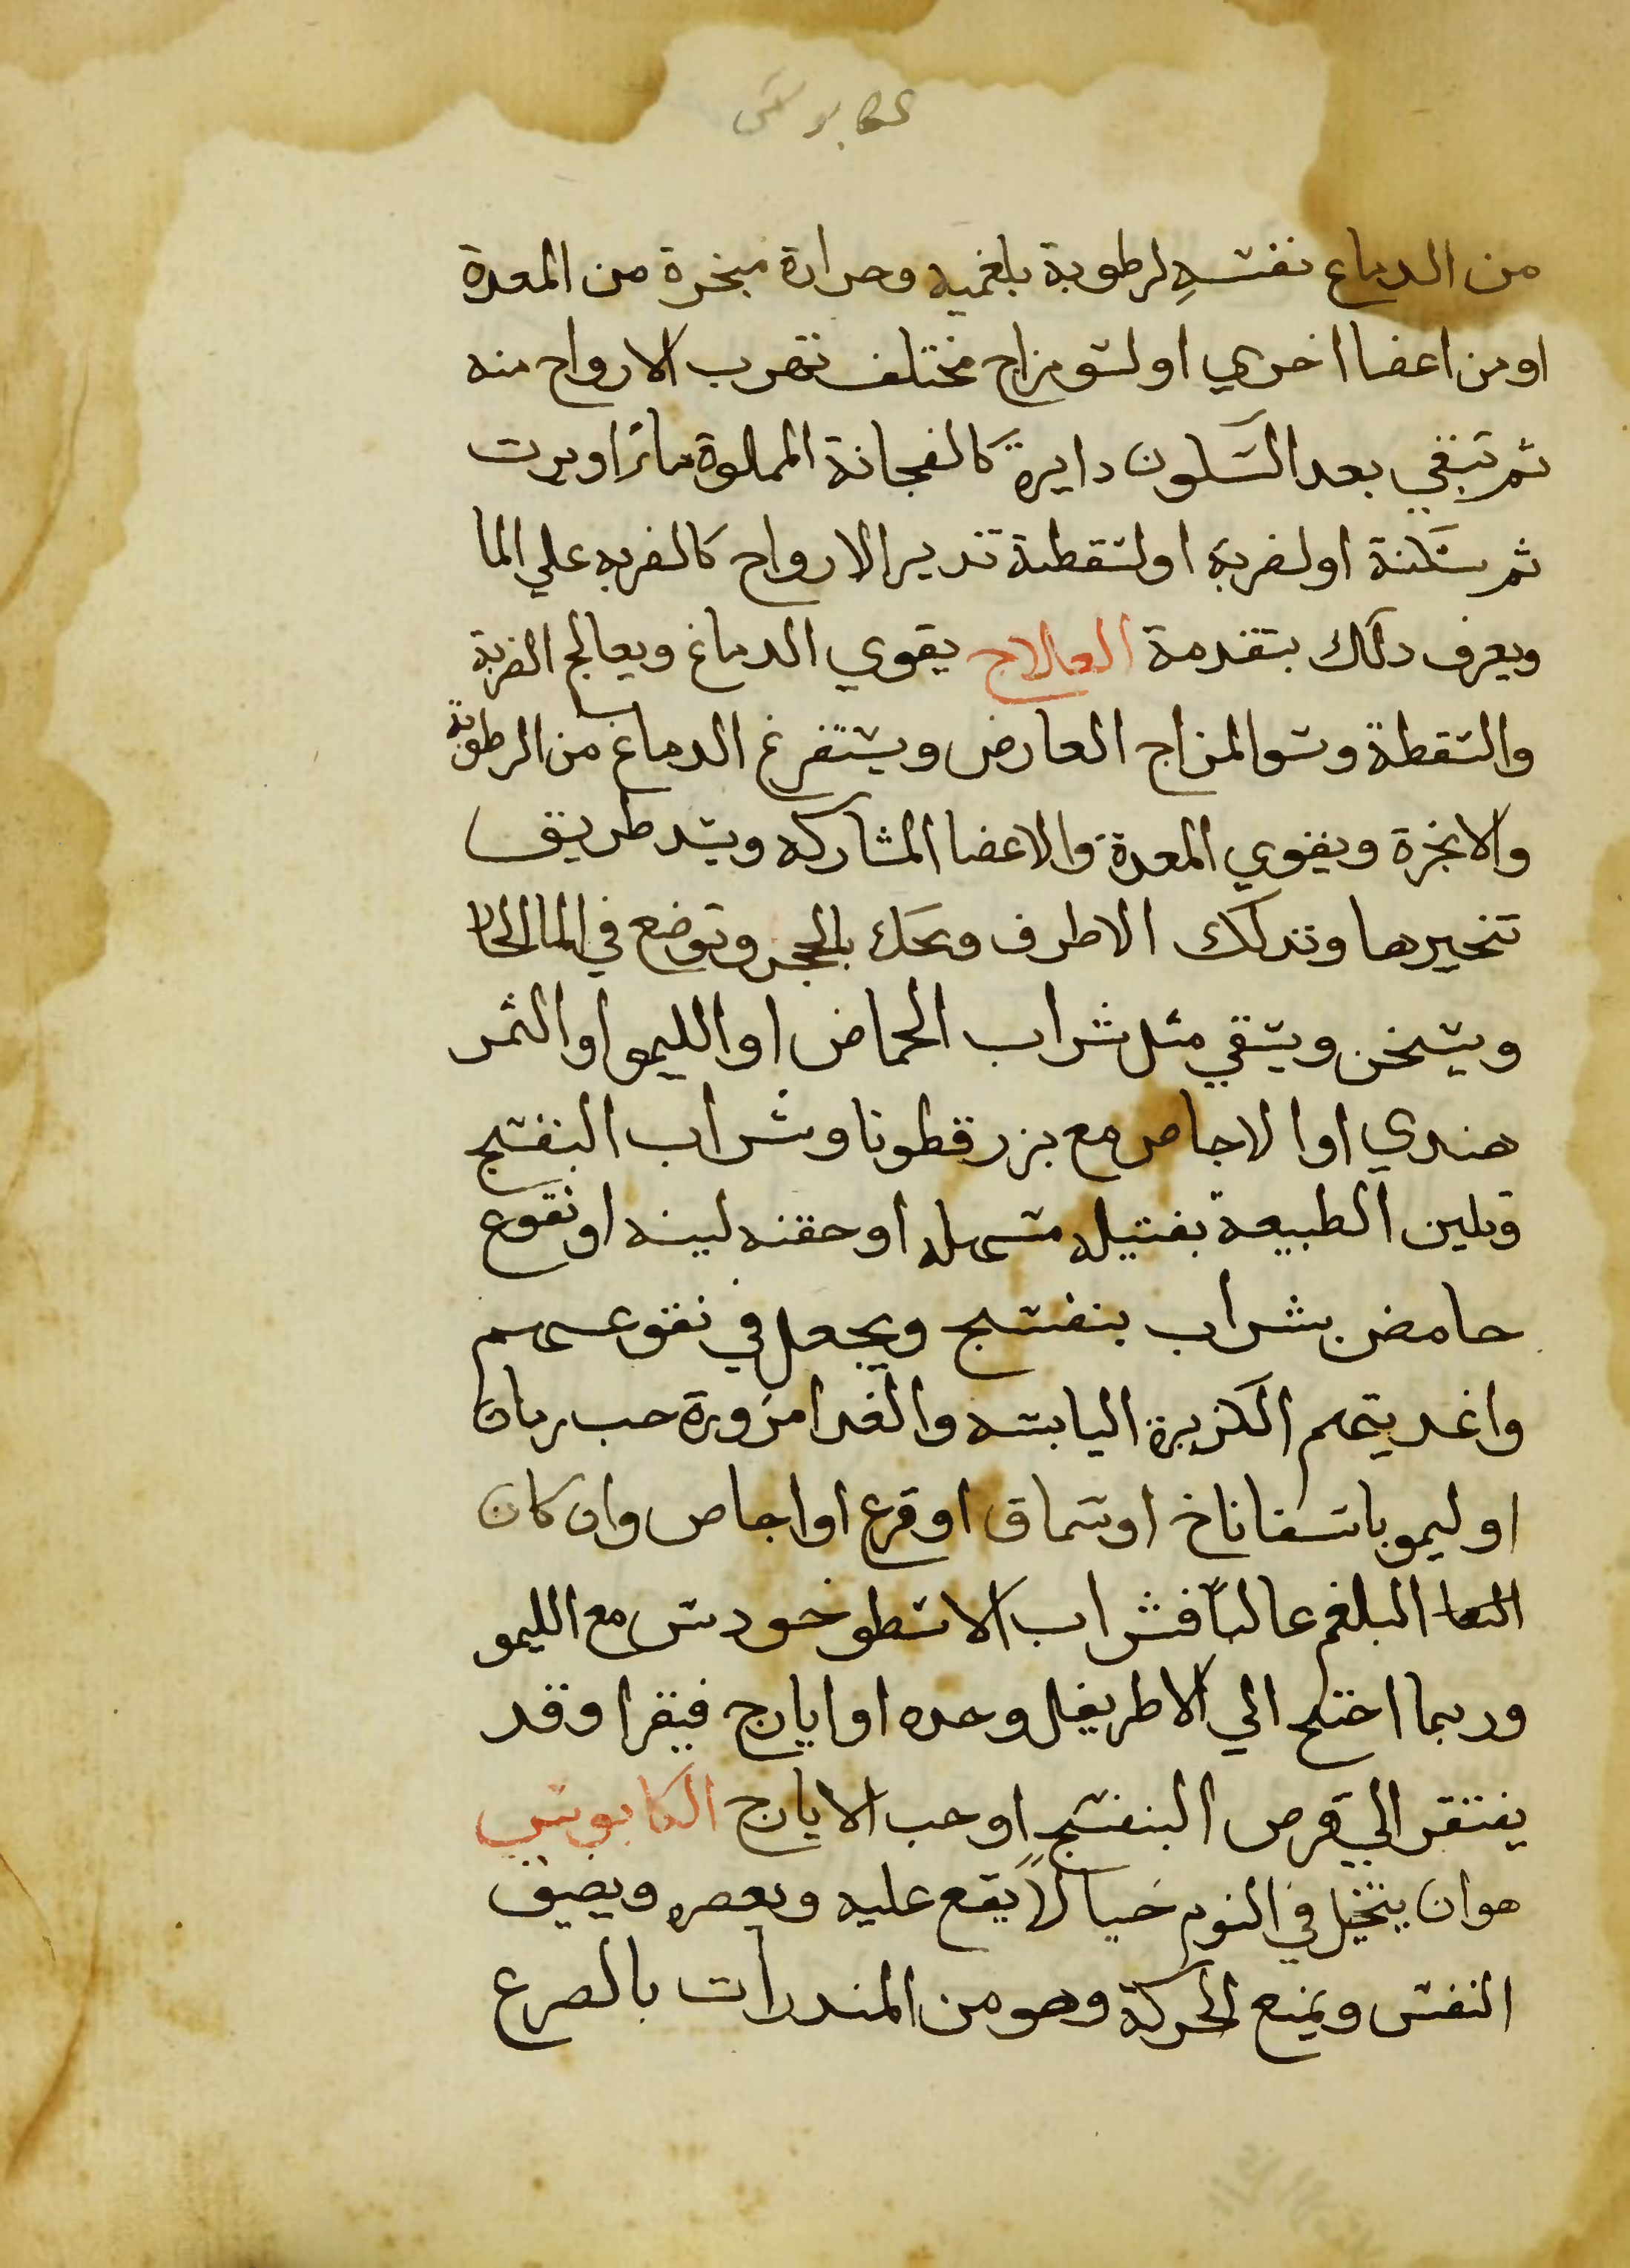 كابوس
من الدماع نفسهِ لرطوبة بلغميه وحرارة مبخرة من المعدة
او من اعضا اخري او لسو مزاج مختلف تهرب الارواح منه
ثم تبقي بعد السكون دايرة كالفجانة المملوة ماءً اديرت
ثم سكنة او لضربة او لسقطة تدير الارواح كالضربه علي الما
ويعرف دلك بتقدمة العالاج يقوي الدماغ ويعالج الضربة
والسقطة وسو المزاج العارض ويستفرغ الدماغ من الرطوبة
والابخرة ويقوي المعدة والاعضا المشاركه ويسد طريق
تبخيرها وتدلك الاطرف وتحك بالحجر وتوضع في الما الحار
ويسخن ويسقي مثل شراب الحماض او الليمو او الثمر
هندي او الاجاص مع بزر قطونا وشراب البنفسج
وتلين الطبيعة بفتيله مسهله او حقنه لينه او نقوع
حامض بشراب بنفسج ويجعل في نقوعهم
واغديتهم الكزبرة اليابسه والغدا مزورة حب رمان
او ليمو باسفاناخ او سماق او قرع او اجاص وان كان
البلغم عالباً فشراب الاسطوخودس مع الليمو
وربما احتج الي الاطريفل وحده او ايارج فيقرا وقد
يفتقر الي قرص البنفسج او حب الايارج الكابوس
هو ان يتخيل في النوم خيالاً يقع عليه ويعصره ويضيق
النفس ويمنع الحركة وهو من المندرات بالصرع